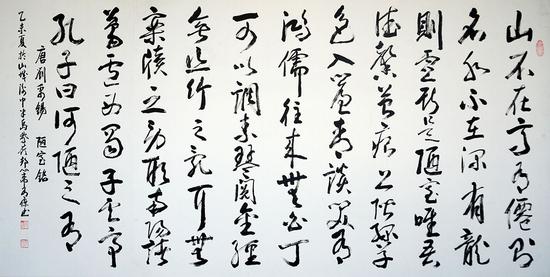 山不在高有僊則
名水不在深有龍
則靈斯是陋室唯吾
德馨苔痕上階綠草
色入簾青談笑有
鴻儒往來無白丁
可以調素琴閱金經
無絲竹之亂耳無
案牘之勞形南陽諸
葛廬西蜀子雲亭
孔子曰何陋之有
唐劉禹錫 陋室銘
乙未夏於山